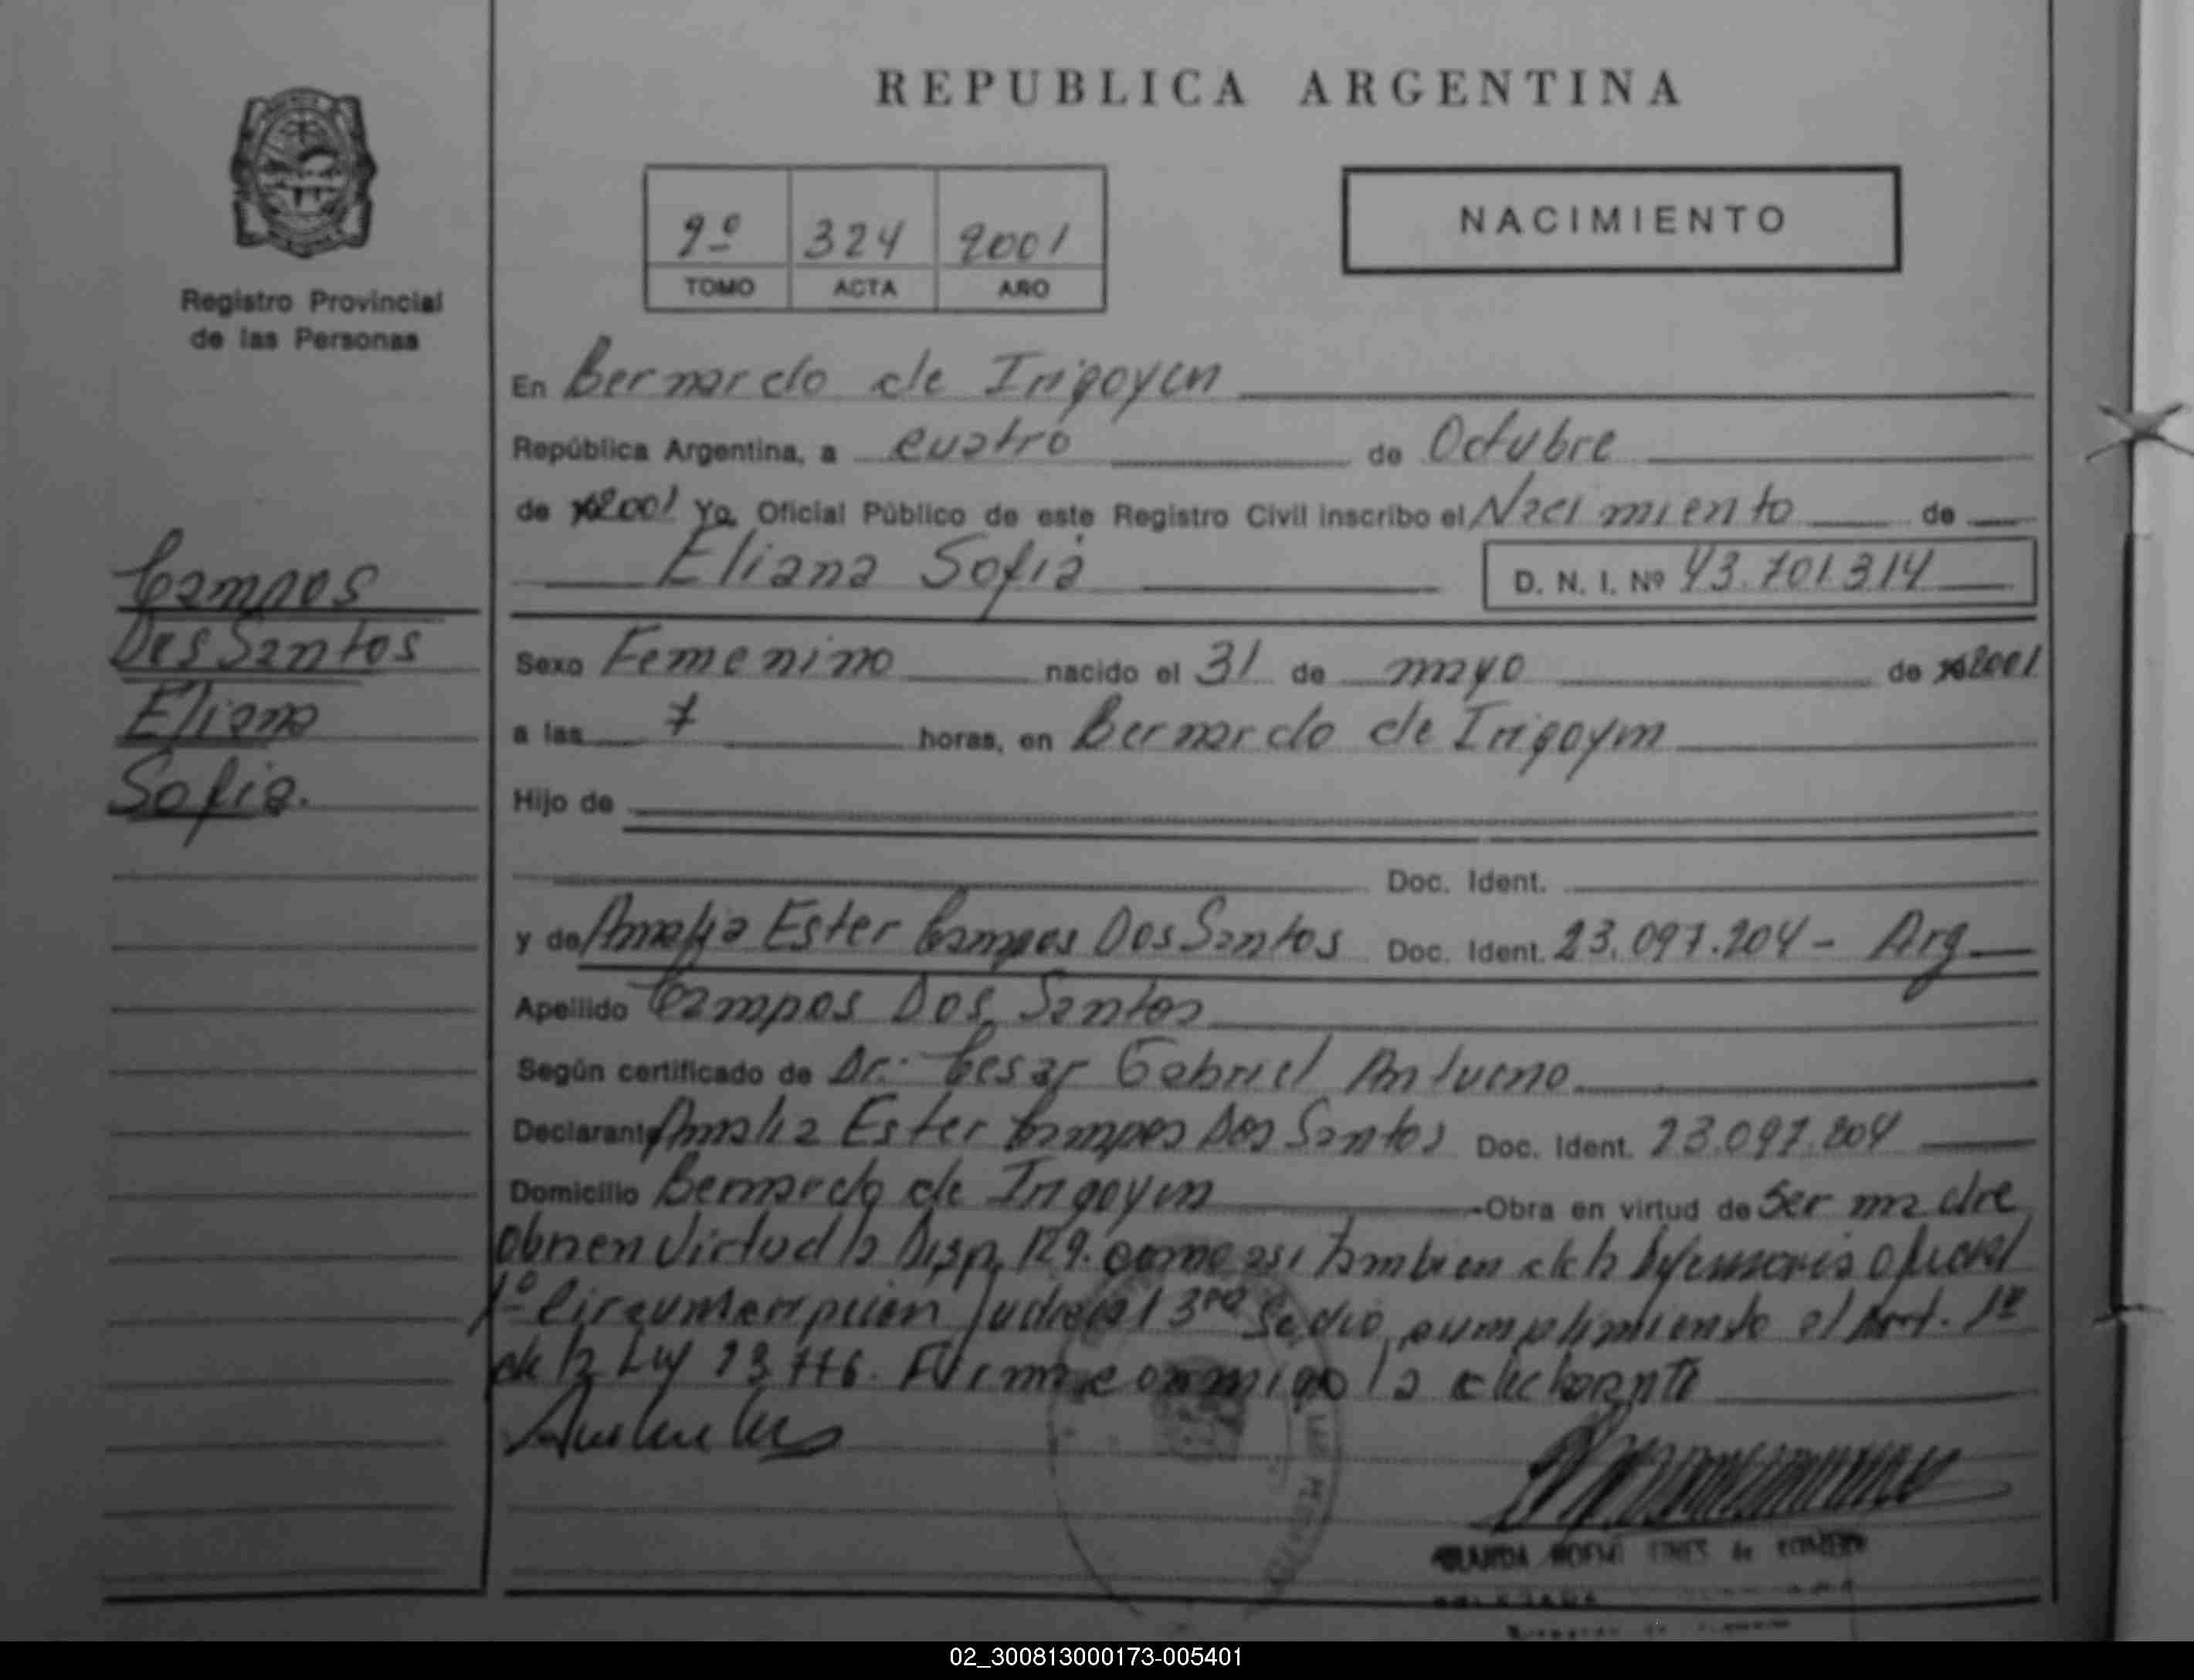 REPUBLICA ARGENTINA
Registro Provincial
de las Personas
2º 324 2001
TOMO ACTA AÑO
NACIMIENTO
En Bernardo de Irigoyen
República Argentina, a cuatro de Octubre
de 2001 Yo, Oficial Público de este Registro Civil inscribo el Nacimiento de
Eliana Sofia D. N. I. Nº 43.701.314
Campos
Dos Santos
Eliana
Sofia.
Sexo Femenino nacido el 31 de mayo de 2001
a las 7 horas, en Bernardo de Irigoyen
Hijo de
Doc. Ident.
y de Amalia Ester Campos Dos Santos Doc. Ident. 23.097.204 - Arg
Apellido Campos Dos Santos
Según certificado de Dr. Cesar Gabriel
Declarante Amalia Ester Campos Dos Santos Doc. Ident. 23.097.204
Domicilio Bernardo de Irigoyen Obra en virtud de Ser madre
virtud la Disp. 129. como asi tambien de la oficial
1º Judicial 3ra el Art. 1º
de la Ley Firma conmigo la declarante
02_300813000173-005401